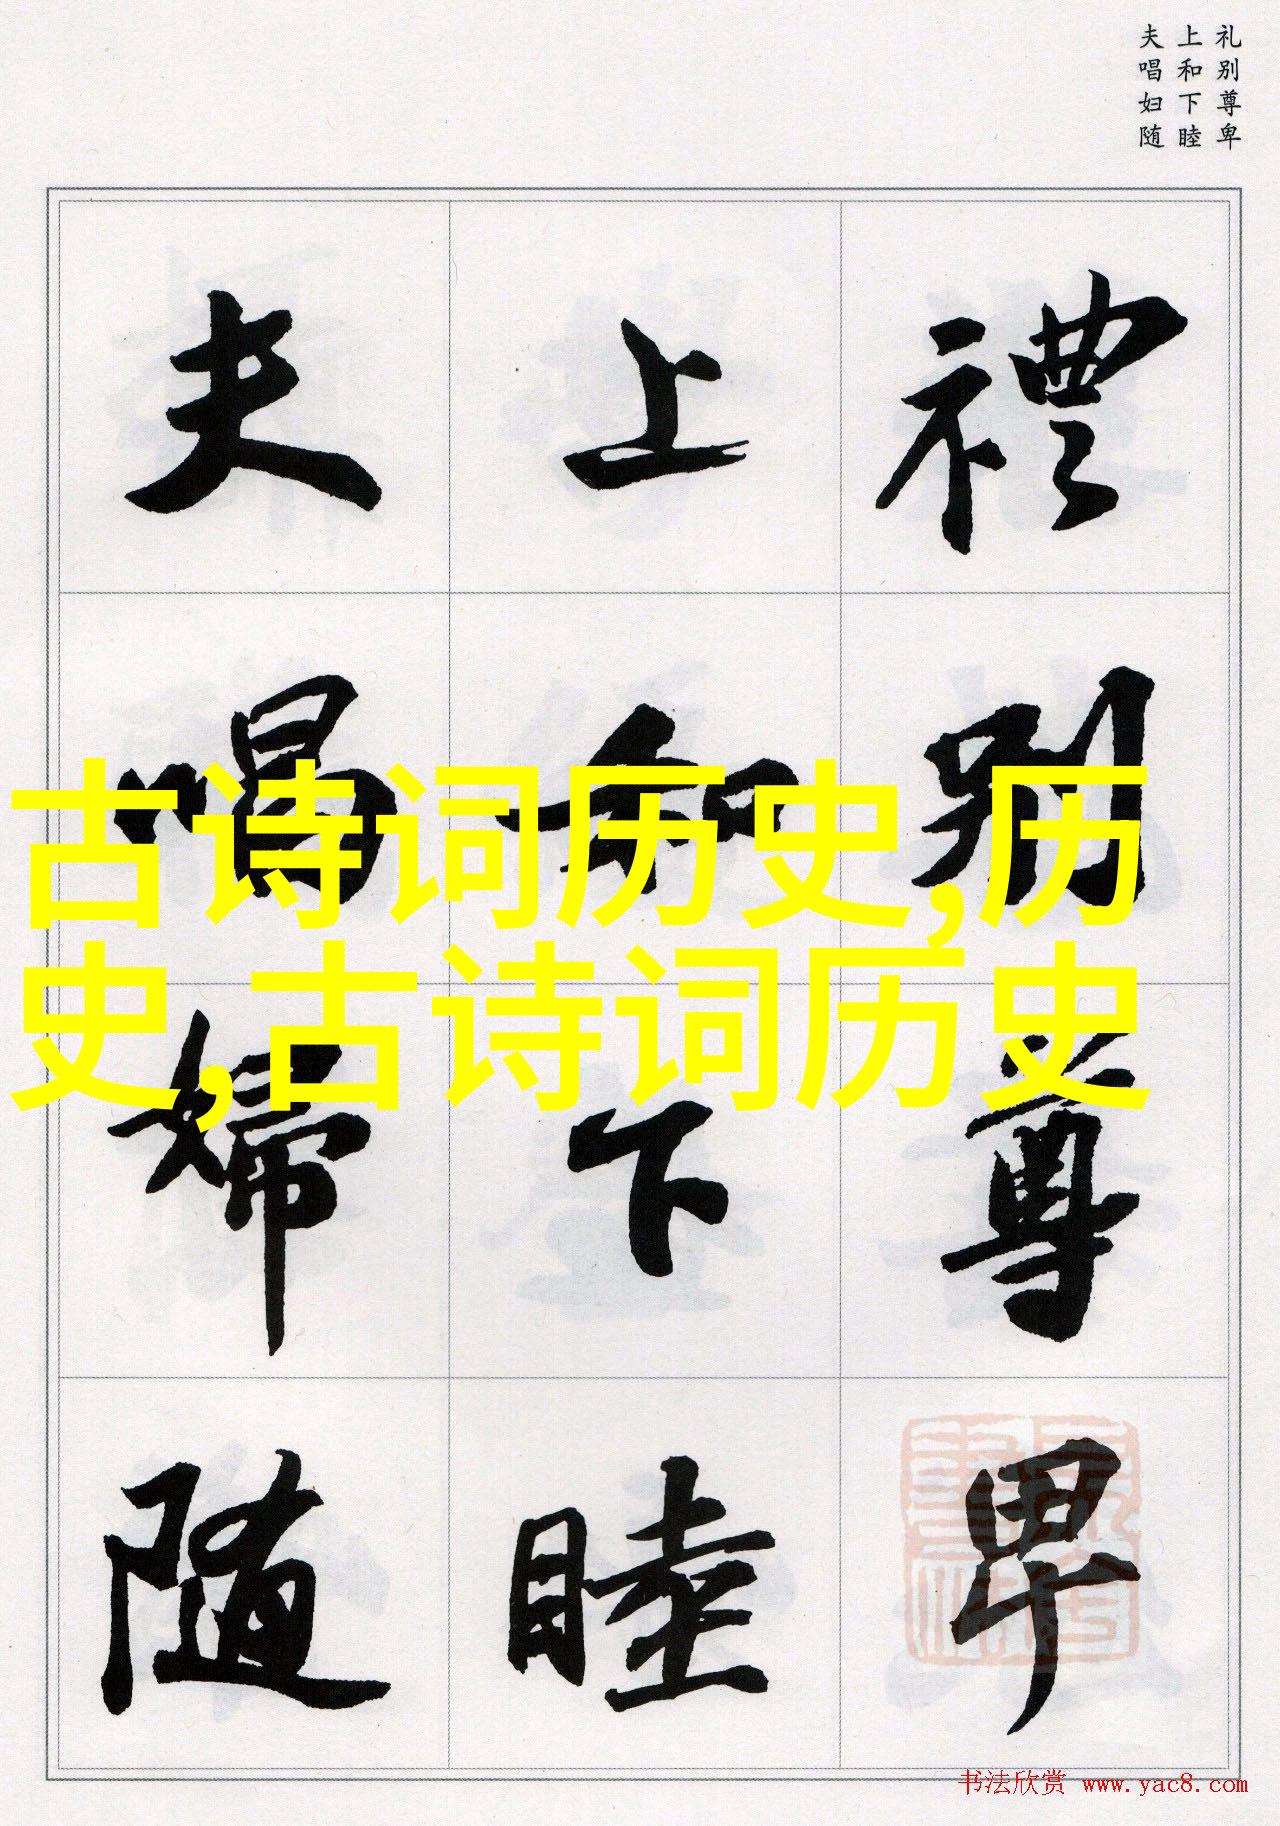 礼别尊卑
上和下睦
夫唱妇随
禮别尊卑
上和下睦
夫唱婦随
古诗词历史,历
史,古诗词历史
书法欣赏 www.yac8.com